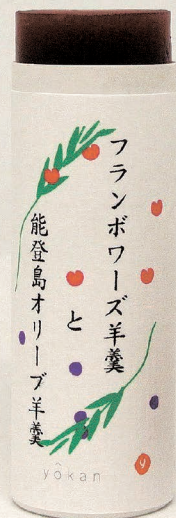 フランボワーズ羊羹
と
能登島オリーブ羊羹
yôkan
y